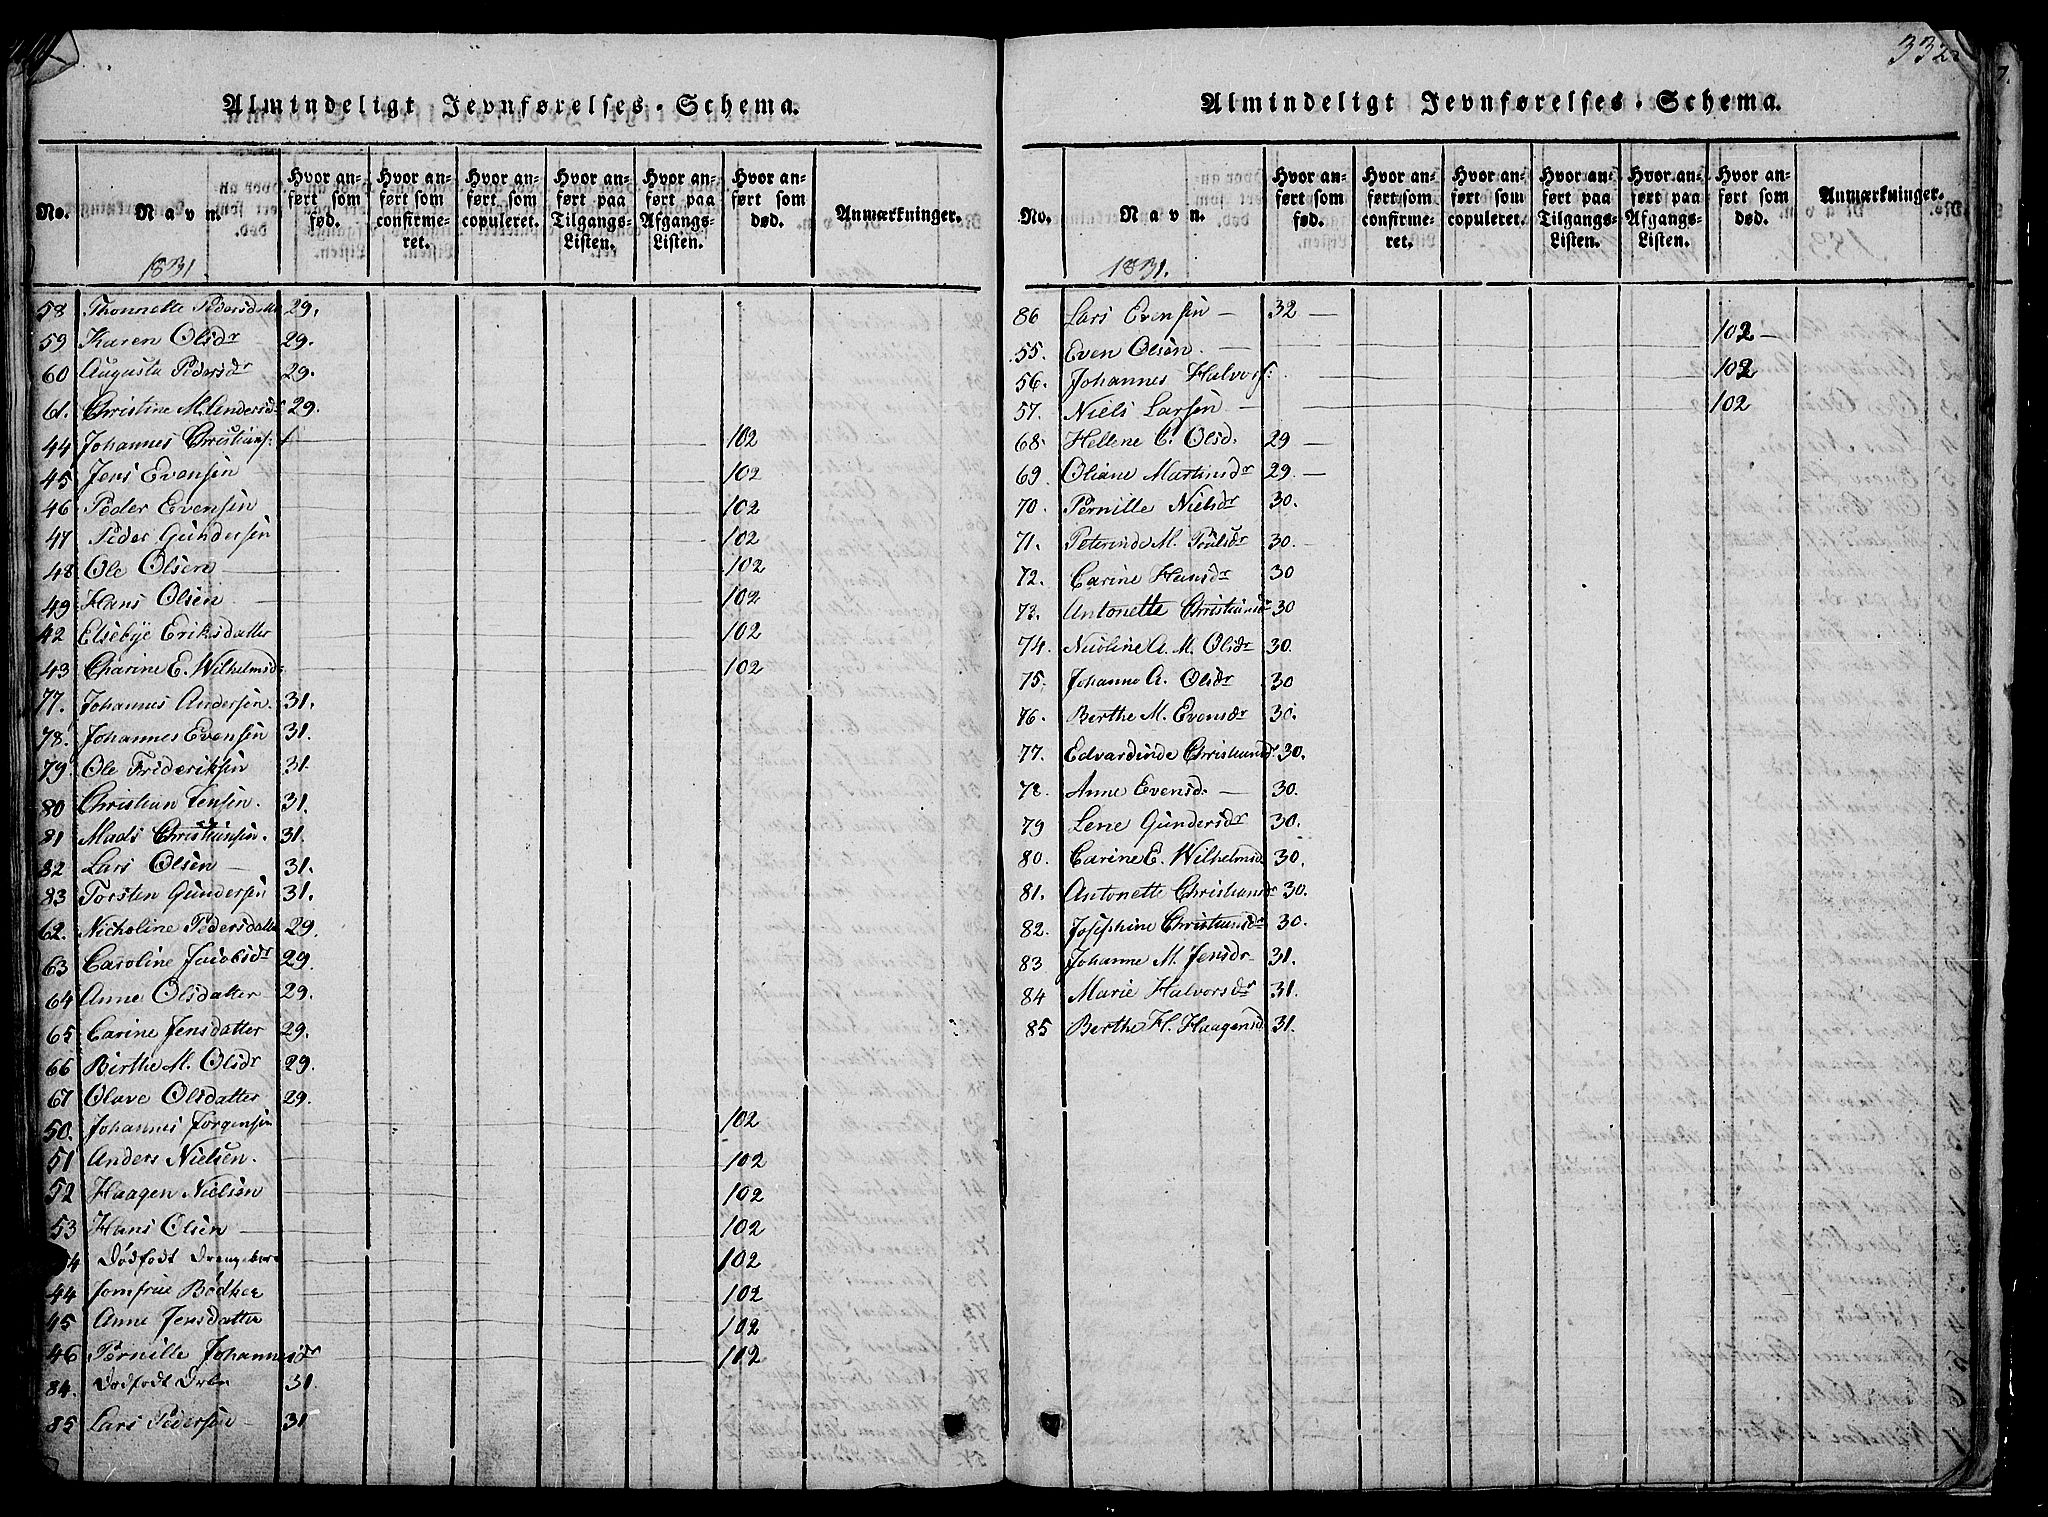 Almindeligt Jevnførelses-Schema.
No. Navn. Hvor anført som fød. Hvor anført som confirmeret. Hvor anført som copuleret. Hvor anført paa Tilgangs-Listen. Hvor anført paa Afgangs-Listen. Hvor anført som død. Anmærkninger.
1831
58 Thonnette Pedersdatter 29.
59 Karen Olsdr 29.
60 Augusta Pedersdr 29.
61. Christine M. Andersdr 29.
44 Johannes Christians: 102
45 Jens Evensen 102
46 Peder Evensen 102
47 Peder Gundersen 102
48 Ole Olsen 102
49 Hans Olsen 102
42 Elsebye Eriksdatter 102
43 Charine E. Wilhelmsdr 102
77. Johannes Andersen. 31.
78. Johannes Evensen 31.
79. Ole Frideriksen 31.
80 Christian Jensen. 31.
81 Mads Christiansen. 31.
82 Lars Olsen 31.
83 Torsten Gundersen 31.
62. Nicholine Pedersdatter 29.
63 Caroline Jacobsdr 29.
64 Anne Olsdatter 29.
65 Carine Jensdatter 29.
66 Birthe M. Olsdr 29.
67 Olave Olsdatter 29.
50. Johannes Jørgensen 102
51 Anders Nielsen. 102
52 Haagen Nielsen 102
53 Hans Olsen 102
54 Dødfødt Drengebarn 102
44 Jomfrue Bødker 102
45 Anne Jensdatter 102
46 Pernille Johannesdr 102
84. Dødfødt 31.
85 Lars Pedersen 31
332
Almindeligt Jevnførelses-Schema.
No. Navn. Hvor anført som fød. Hvor anført som confirmeret. Hvor anført som copuleret. Hvor anført paa Tilgangs-Listen. Hvor anført paa Afgangs-Listen. Hvor anført som død. Anmærkninger.
1831.
86 Lars Evensen 32
55. Even Olsen. 102
56. Johannes Halvors: 102
57. Niels Larsen 102
68. Hellene C. Olsd. 29
69. Oliane Martinsdr 29.
70. Pernille Nielsdr 30.
71. Peterinde M. Poulsdr 30.
72. Carine Hansdr 30
73. Antonette Christiansdr 30
74. Nicoline A. M. Olsdr 30.
75. Johanne A. Olsdr 30
76. Berthe M. Evensdr 30.
77. Edvardinde Christiansdr 30.
78. Anne Evensd. 30.
79 Lene Gundersdr 30.
80. Carine E. Wilhelmsd 30.
81. Antonette Christiansdr 30.
82. Josephine Christiansdr 30.
83 Johanne M. Jensdr 31.
84 Marie Halvorsdr 31.
85 Berthe H. Haagensd 31.